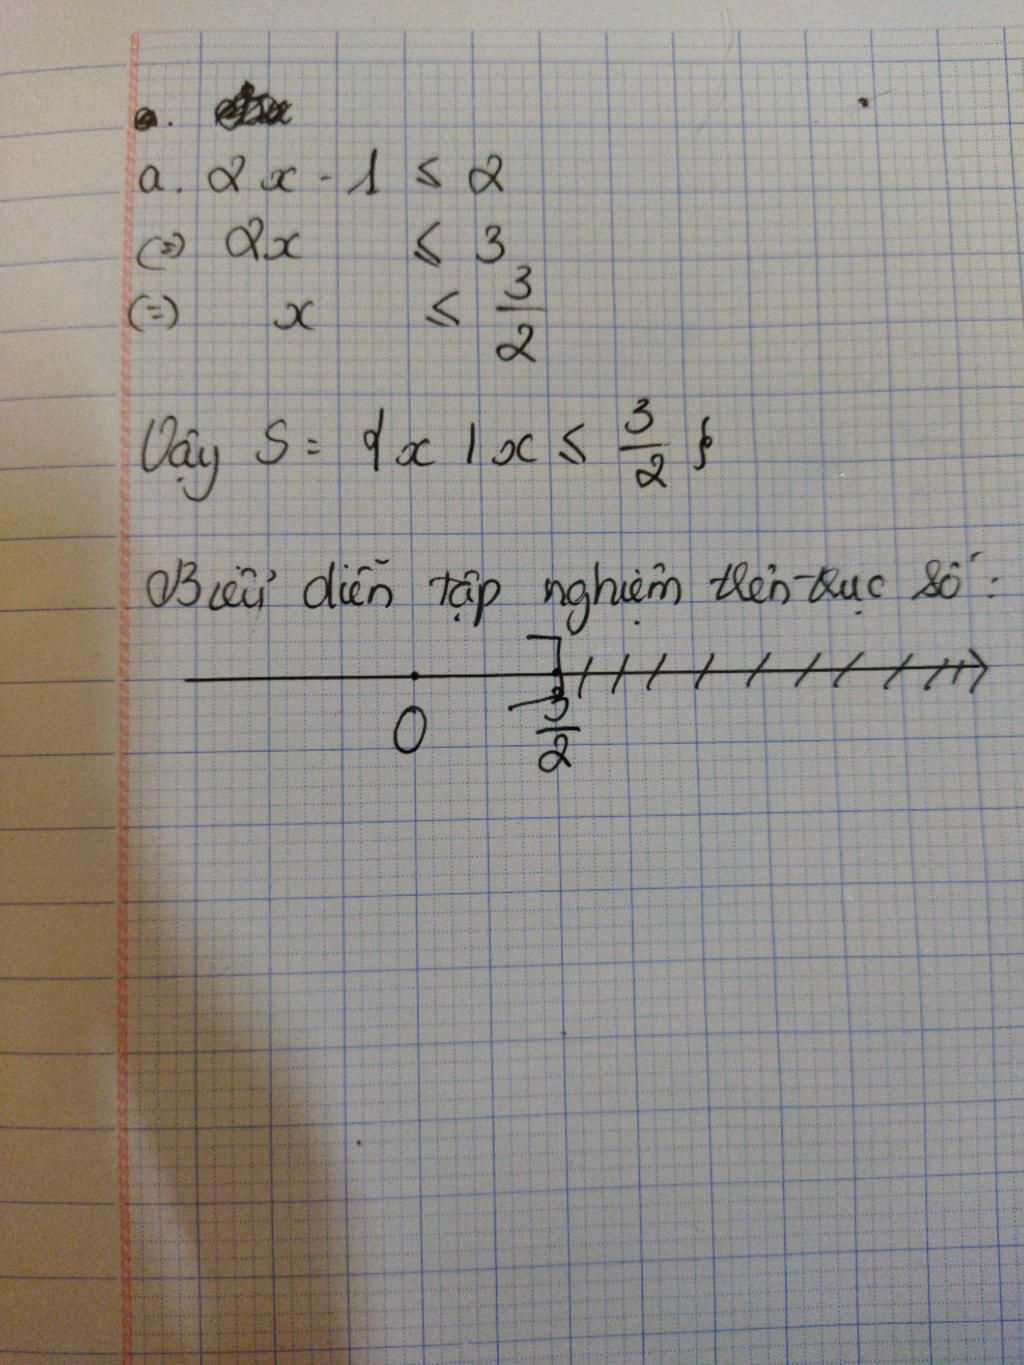 a.
a. 2x - 1 ≤ 2
(=) 2x ≤ 3
(=) x ≤ 3/2
Vậy S = {x | x ≤ 3/2}
Biểu diễn tập nghiệm trên trục số:
0 3/2